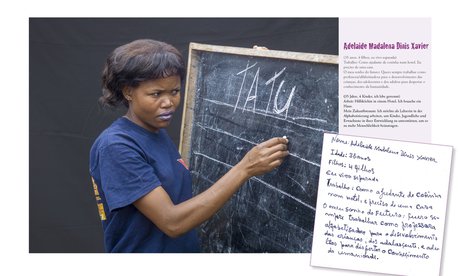 TATU
Adelaide Madalena Dinis Xavier
(35 anos, 4 filhos, eu vivo separada)
Trabalho: Como ajudante de cozinha num hotel. Eu
preciso de uma casa
O meu sonho do futuro: Quero sempre trabalhar como
professora/alfabetizadora para o desenvolvimento das
crianças, dos adolescentes e dos adultos para despertar o
conhecimento da humanidade.
(35 Jahre, 4 Kinder, ich lebe getrennt)
Arbeit: Hilfsköchin in einem Hotel. Ich brauche ein
Haus.
Mein Zukunftstraum: Ich möchte als Lehrerin in der
Alphabetisierung arbeiten, um Kinder, Jugendliche und
Erwachsene in ihrer Entwicklung zu unterstützen, um so
zu mehr Menschlichkeit beizutragen.
Nome: Adelaide Madalena Dinis Xavier
Idade: anos
Filhos: 4 filhos
Eu vivo separada
Trabalho: Como ajudante de Cozinha
num hotel, e preciso de uma Casa
O meu sonho do Futuro: quero se-
mpre trabalhar como professora
alfabetizadora para o desenvolvimento
das crianças, dos adolescente, e adu-
ltos para despertar o Conhecimento
da humanidade.